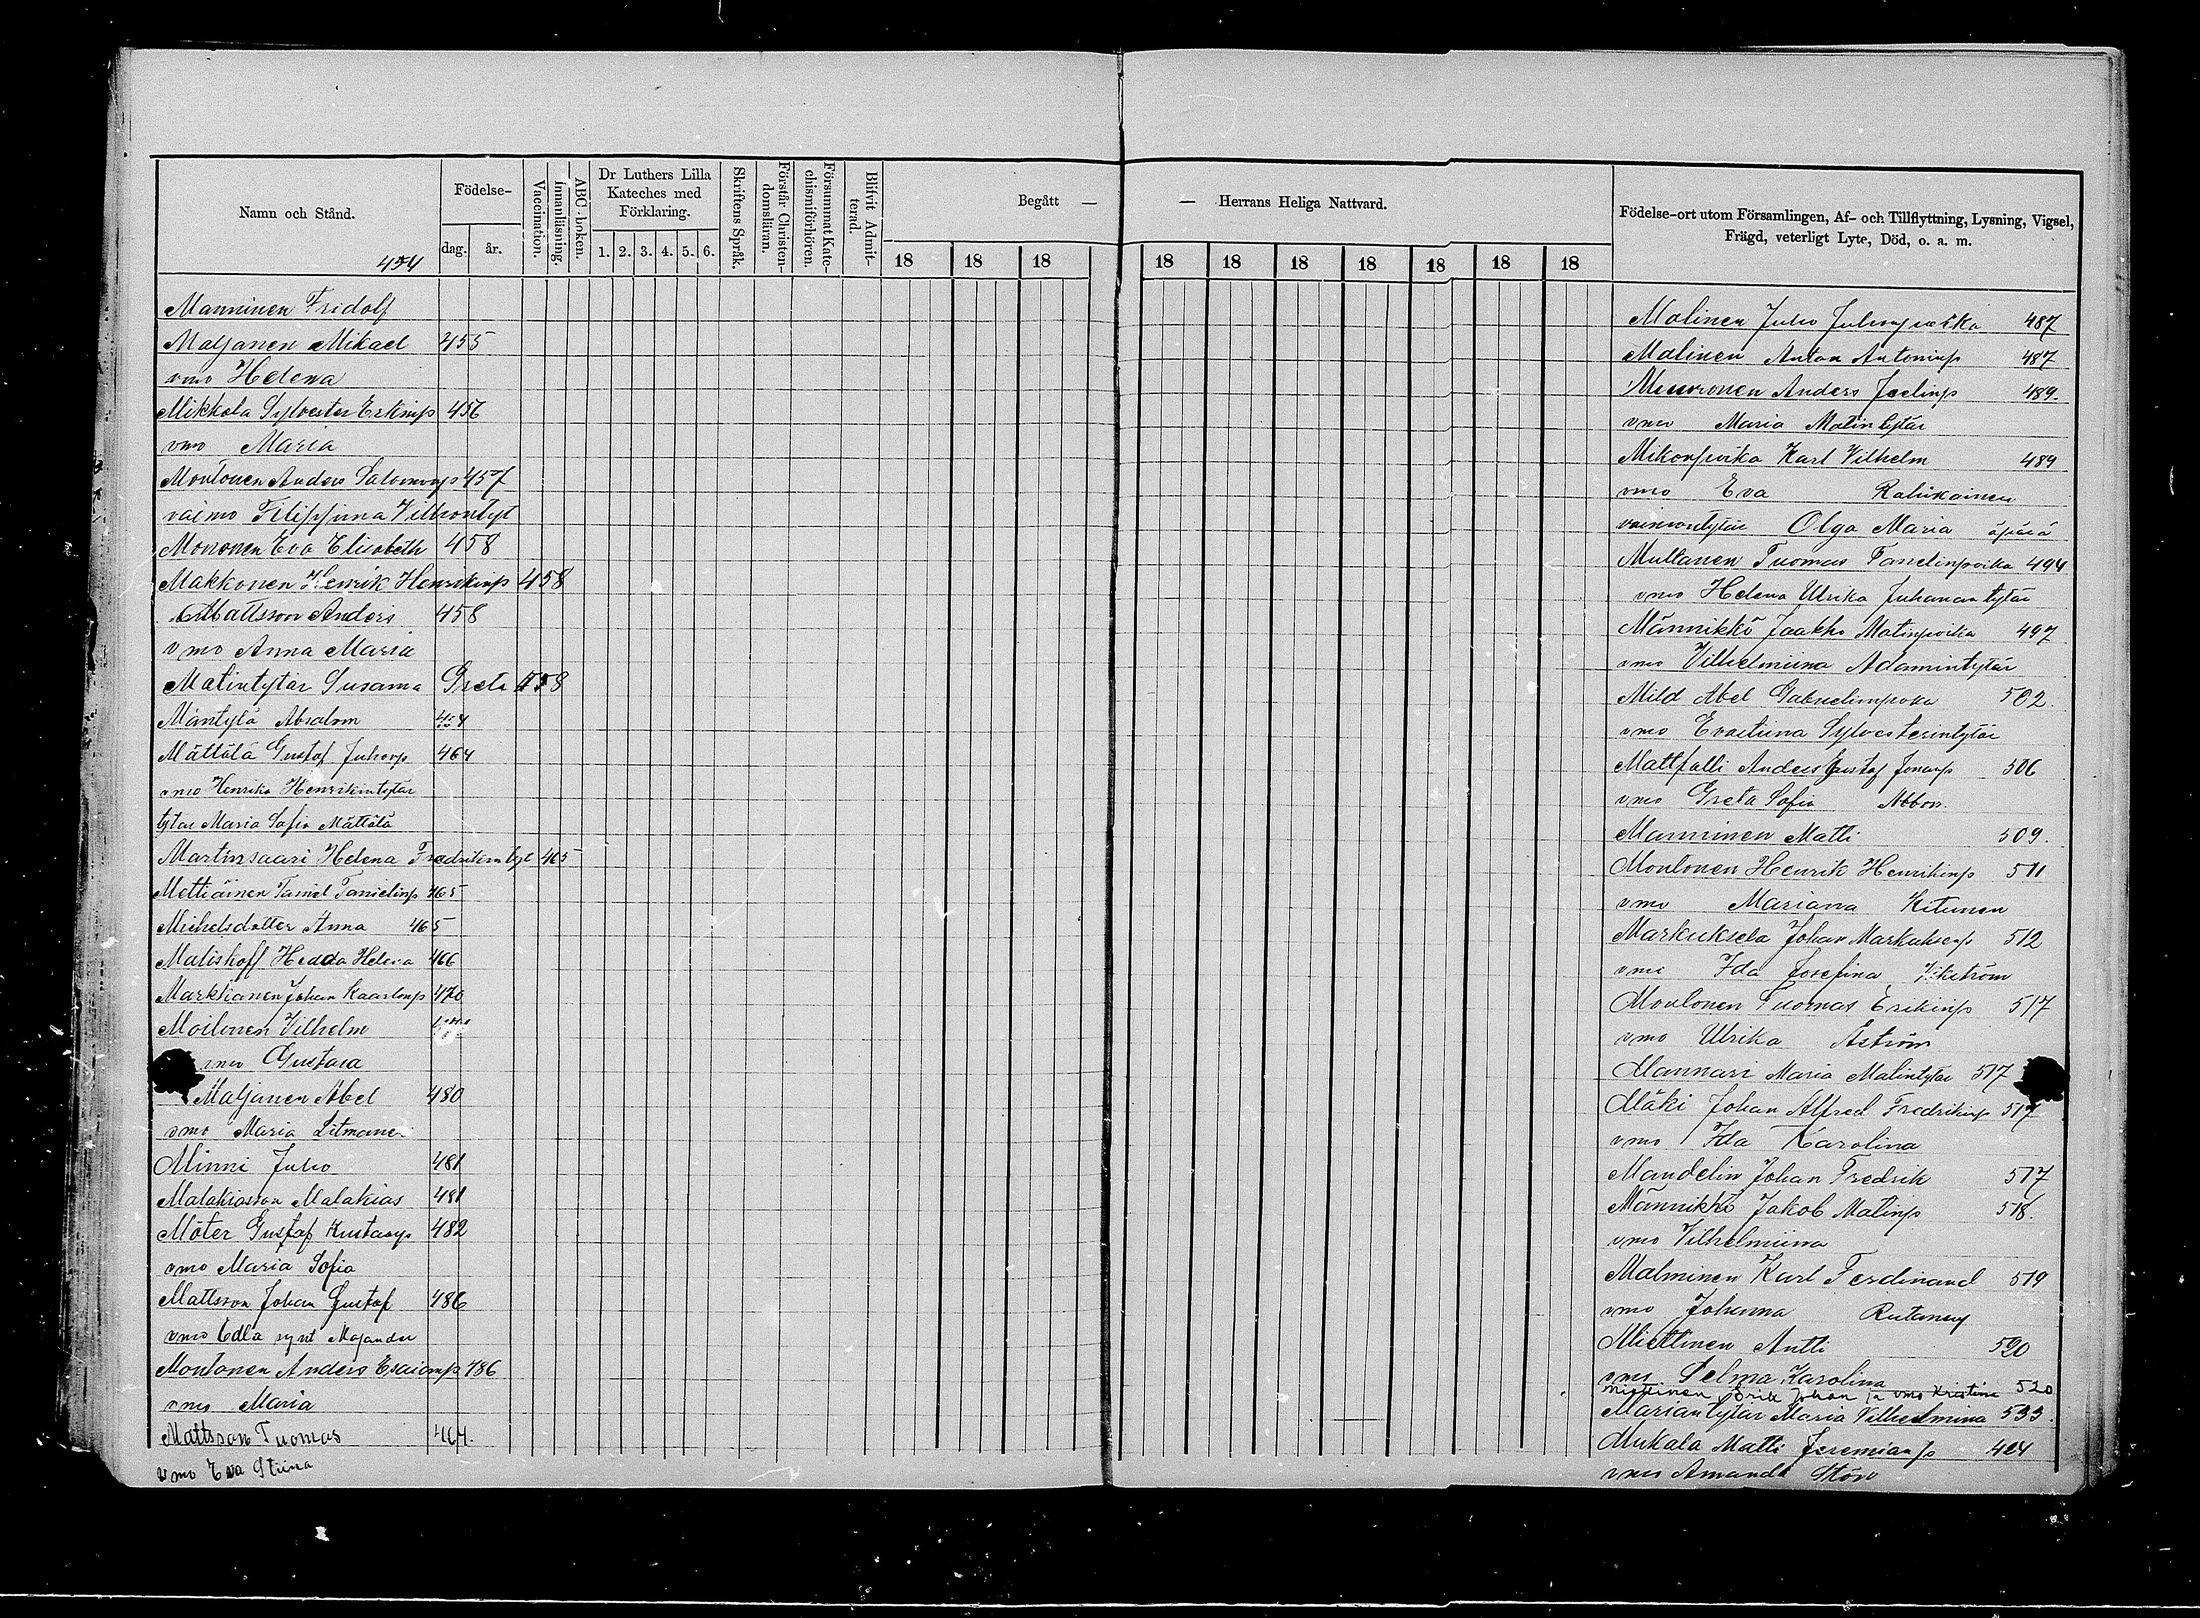 Namn och Stånd.
454
Födelse-
dag. år.
Vaccination.
Innanläsning.
ABC-boken.
Dr Luthers Lilla
Kateches med
Förklaring.
1. 2. 3. 4. 5. 6.
Skriftens Språk.
Förstår Christen-
domsläran.
Försummat Kate-
chismiförhören.
Blifvit Admit-
terad.
Begått —
18 18 18
— Herrans Heliga Nattvard.
18 18 18 18 18 18 18
Födelse-ort utom Församlingen, Af- och Tillflyttning, Lysning, Vigsel,
Frägd, veterligt Lyte, Död, o. a. m.
Manninen Fridolf
Maljanen Mikael 455
vmo Helena
Mikkola Sylvester Erkinp 456
vmo Maria
Montonen Anders Salomonp 457
vaimo Filippina Villiontyt
Mononen Eva Elisabeth 458
Makkonen Henrik Henrikinp 458
Mattsson Anders 458
vmo Anna Maria
Matintytär Susanna Greta 458
Mäntylä Absalom
Mättälä Gustaf Juhonp 464
vmo Henrika Henrikintytär
tytär Maria Sofia Mättälä
Martinsaari Helena Fredrikintyt 465
Mettiäinen Taniel Tanielinp 465
Michelsdotter Anna 465
Malishoff Hedda Helena 466
Markkanen Johan Kaarlonp 470
Moilonen Vilhelm
vmo Gustava
Maljanen Abel 480
vmo Maria Litmanen
Minni Juho 481
Malakiasson Malakias 481
Möter Gustaf Kustaanp 482
vmo Maria Sofia
Mattsson Johan Gustaf 486
vmo Edla synt Majander
Montonen Anders Esaianp 486
vmo Maria
Mattsson Tuomas 464.
vmo Eva Stiina
Malinen Juho Juhonpoika 487
Malinen Anton Antoninp 487
Muuronen Anders Joelinp 489.
vmo Maria Matintytär
Mikonpoika Karl Vilhelm 489
vmo Eva Raliikainen
vaimontytär Olga Maria äpärä
Multanen Tuomas Tanelinpoika 494
vmo Helena Ulrika Juhanantytär
Männikkö Jaakko Matinpoika 497
vmo Vilhelmiina Adamintytär
Mild Abel Gabrielinpoika 502.
vmo Evastiina Sylvesterintytär
Mattfalli Anders Gustaf Jonanp 506
vmo Greta Sofia
Manninen Matti 509.
Montonen Henrik Henrikinp 511
vmo Mariana Ketunen
Markuksela Johan Markuksenp 512
vmo Ida Josefina Vikström
Montonen Tuomas Erikinp 517
vmo Ulrika Åström
Mannari Maria Matintytär 517
Mäki Johan Alfred Fredrikinp 517
vmo Ida Karolina
Mandelin Johan Fredrik 517
Männikkö Jakob Matinp 518.
vmo Vilhelmiina
Malminen Karl Ferdinand 519
vmo Johanna
Miettinen Antti 520
vmo Selma Karolina
Miettinen Erik Johan ja vmo Kristina 520
Mariantytär Maria Vilhelmina 533.
Mukala Matti Jeremianp 424
vmo Amanda